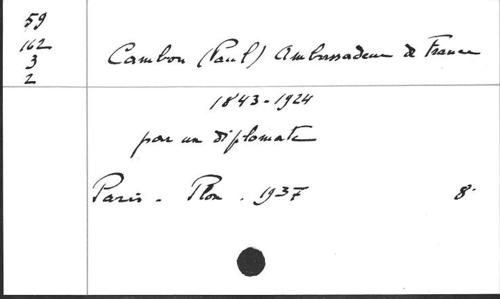 59
162
3
2
Cambon (Paul) Ambassadeur de France
1843-1924
par un diplomate
Paris - Plon. 1937 8°